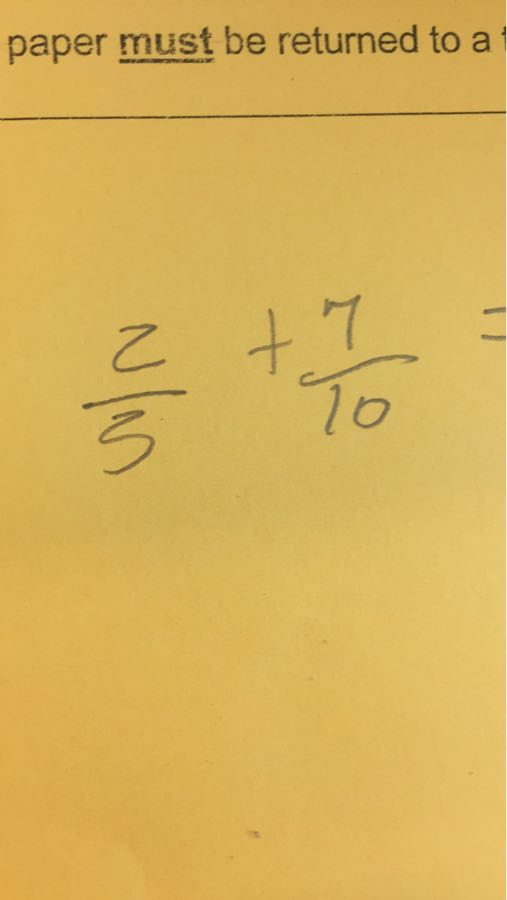 paper must be returned to a
2/5 + 7/10 =